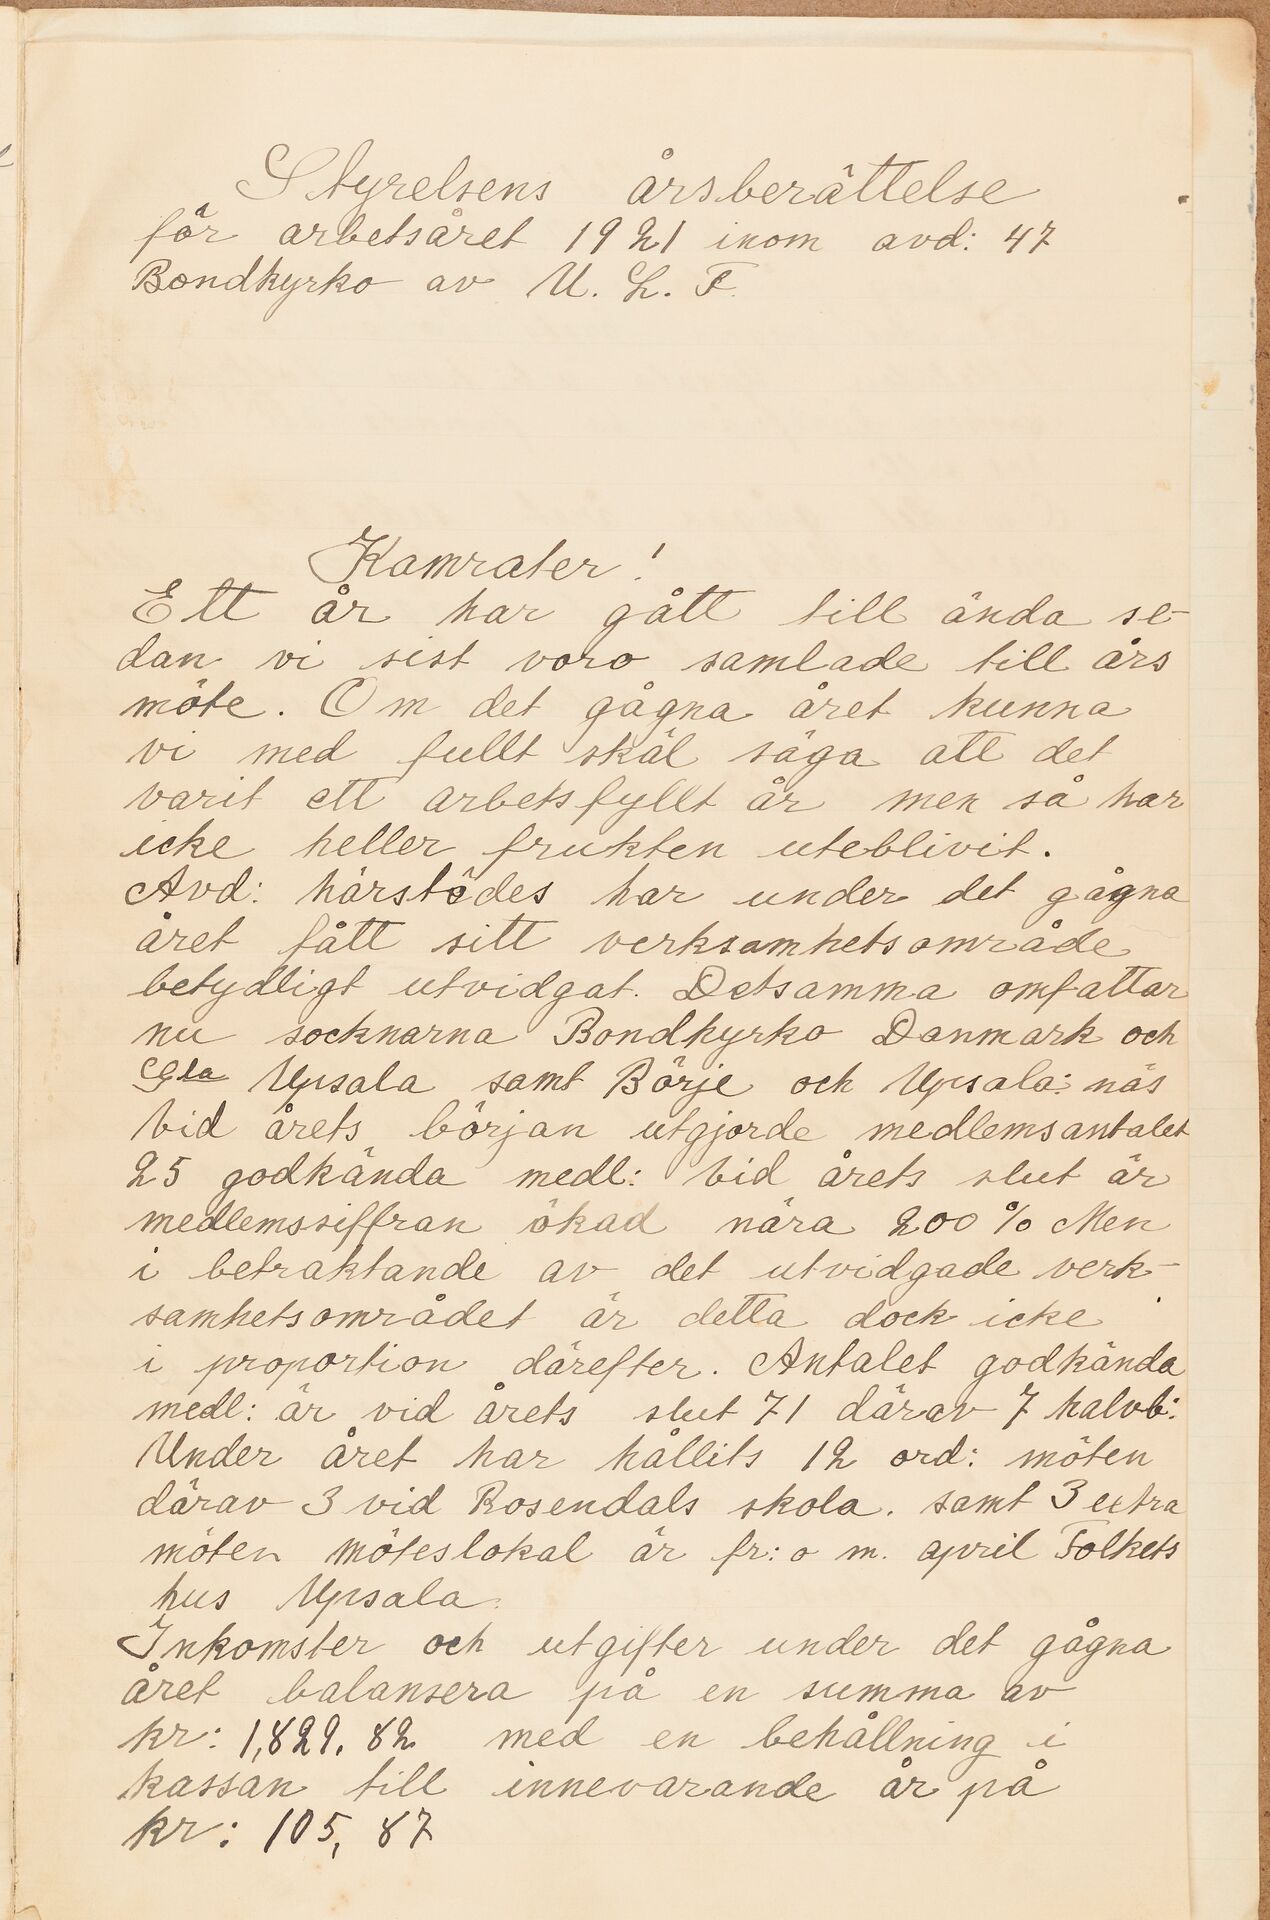 Styrelsens årsberättelse
för arbetsåret 1921 inom avd: 47
Bondkyrko av U. L. F.
Kamrater!
Ett år har gått till ända se-
dan vi sist voro samlade till års
möte. Om det gågna året kunna
vi med fullt skäl säga att det
varit ett arbetsfyllt år men så har
icke heller frukten uteblivit.
Avd: härstädes har under det gågna
året fått sitt verksamhetsområde
betydligt utvidgat. Detsamma omfattar
nu socknarna Bondkyrko Danmark och
Gla Upsala samt Börje och Upsala: näs
Vid årets början utgjorde medlemsantalet
25 godkända medl: Vid årets slut är
medlemssiffran ökad nära 200 % Men
i betraktande av det utvidgade verk-
samhetsområdet är detta dock icke
i proportion därefter. Antalet godkända
medl: är vid årets slut 71 därav 7 halvb:
Under året har hållits 12 ord: möten
därav 3 vid Rosendals skola. samt 3 extra
möten möteslokal är fr: o m. april Folkets
hus Upsala.
Inkomster och utgifter under det gågna
året balansera på en summa av
kr: 1,829. 82 med en behållning i
kassan till innevarande år på
kr: 105, 87